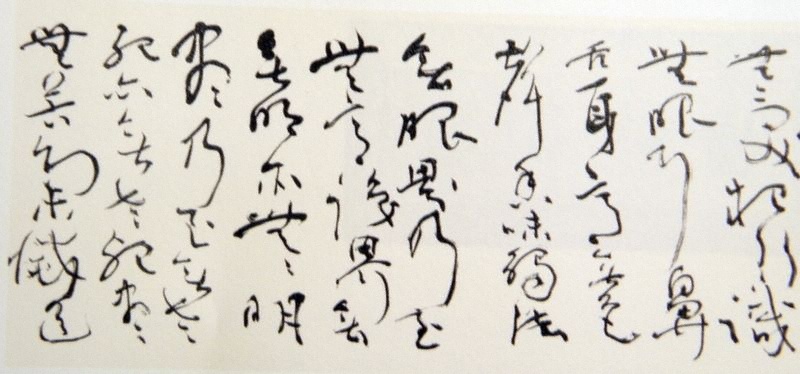 無受想行識
無眼耳鼻
舌身意無色
聲香味觸法
無眼界乃至
無意識界無
無明亦無〻明
盡乃至無老
死亦無老死盡
無苦集滅道